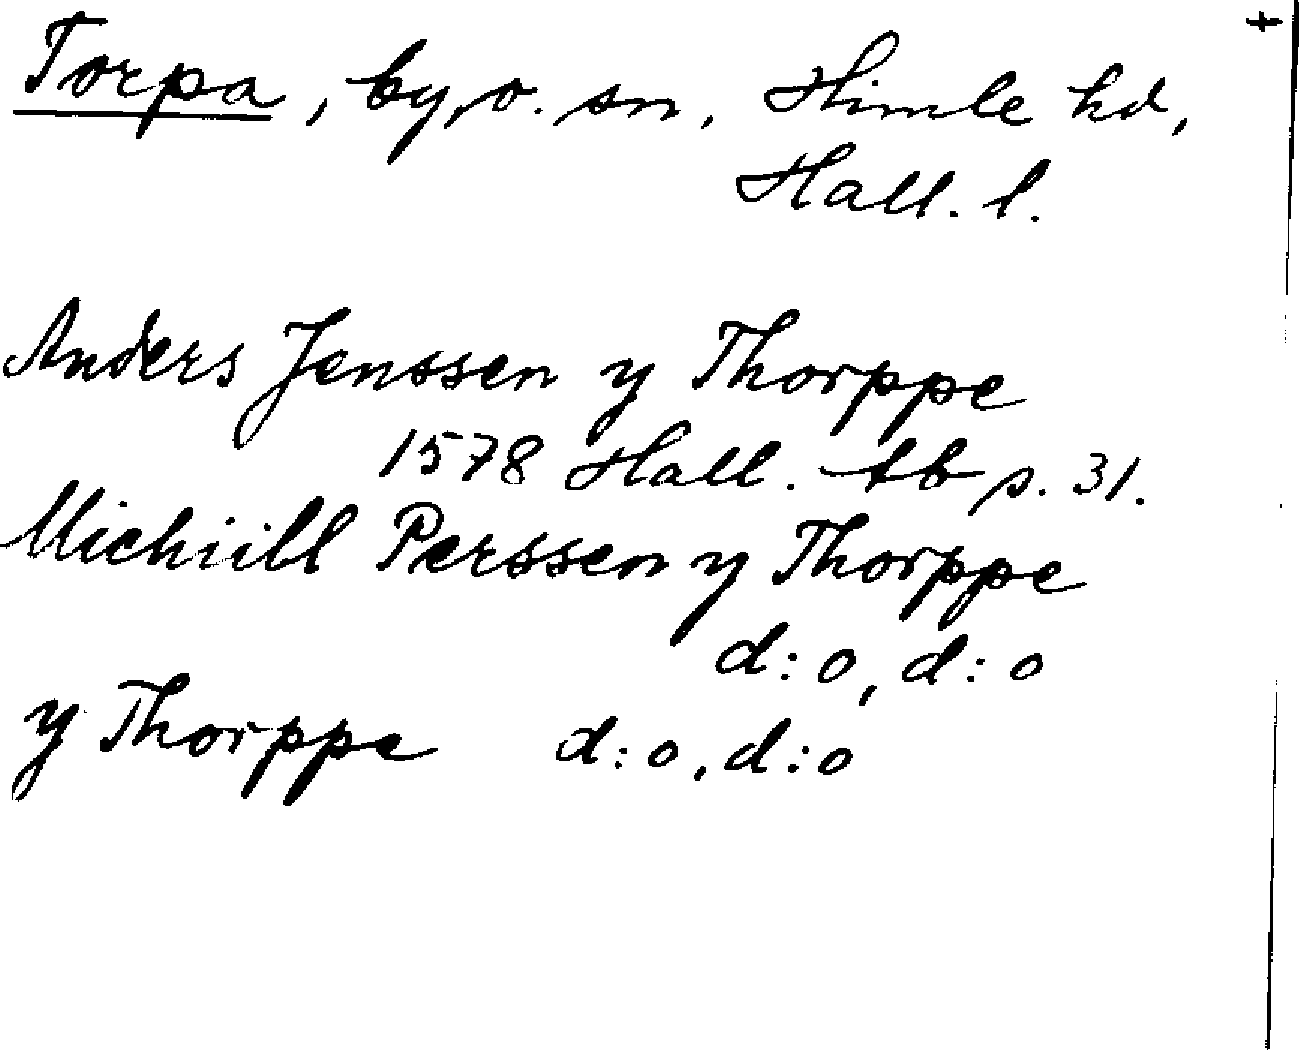 Torpa, by, o. sn, Himle hd,
Hall. l.
Anders Jenssen y Thorppe
1578 Hall. tb s. 31.
Michiill Perssen y Thorppe
d:o, d:o
y Thorppe d:o, d:o